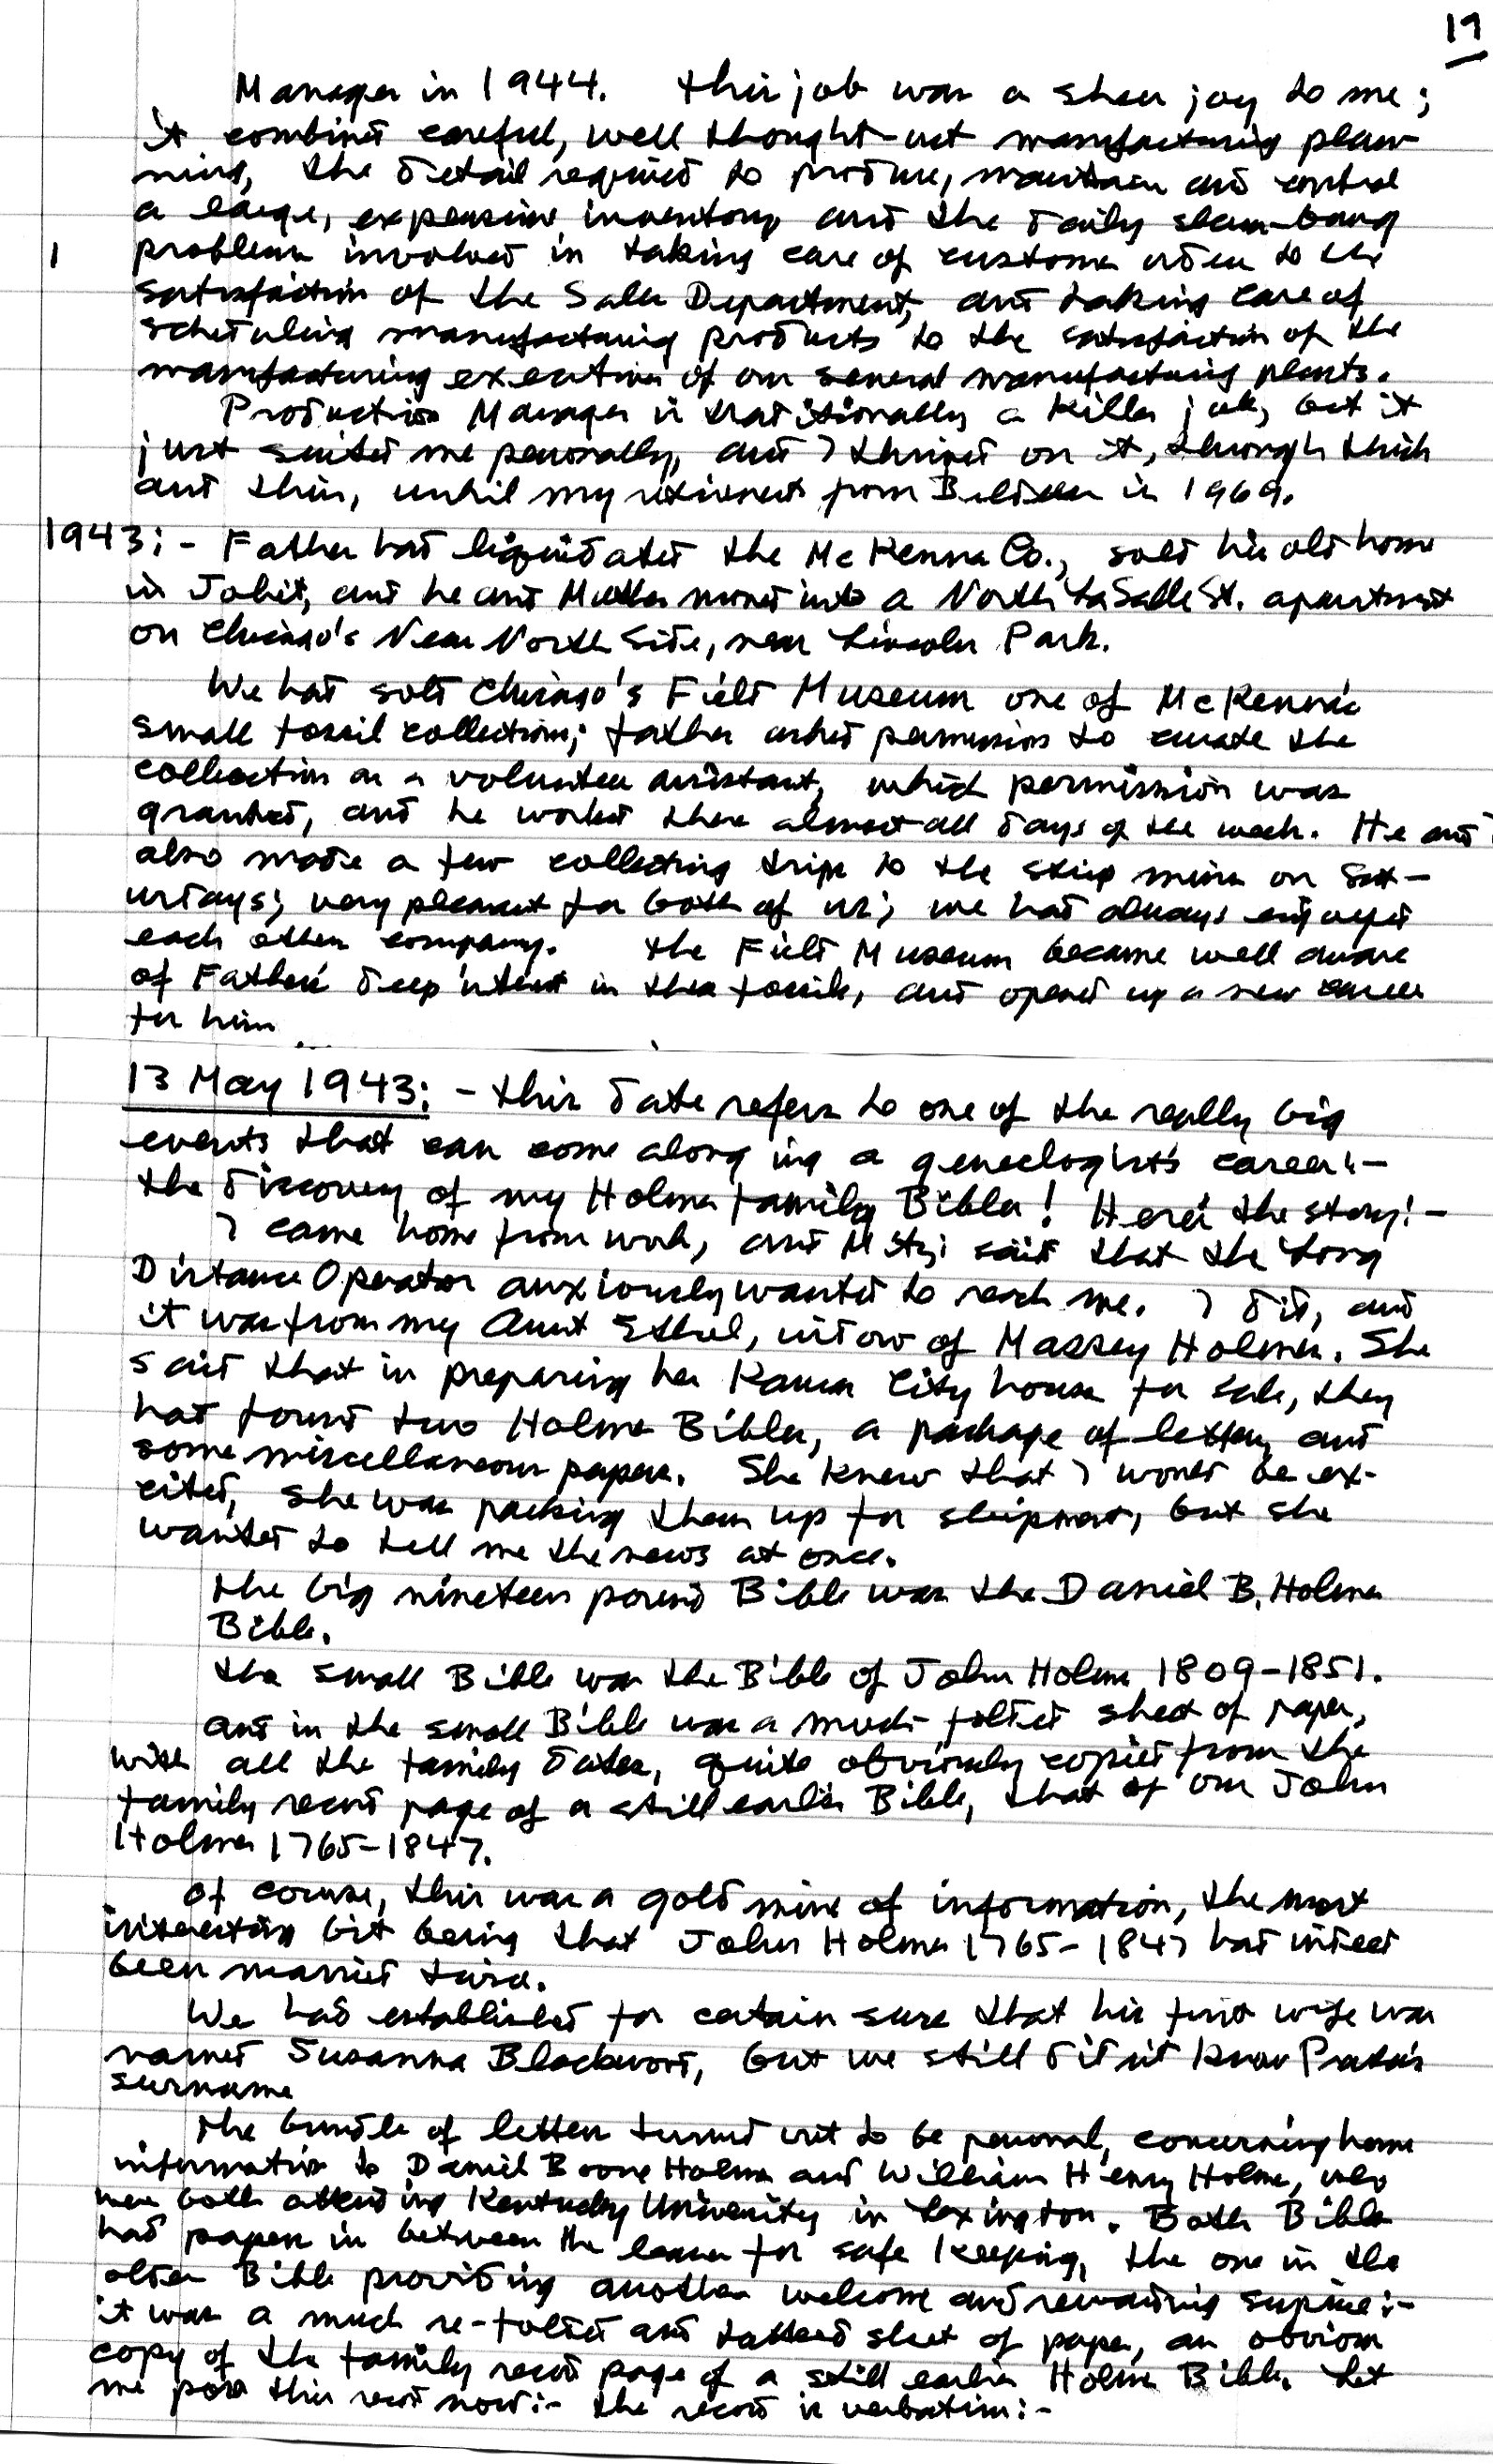 19
Manager in 1944. This job was a sheer joy to me;
it combined careful, well thought-out manufacturing plan-
ning, the detail required to produce, maintain and control
a large, expensive inventory and the daily slam-bang
problems involved in taking care of customer orders to the
satisfaction of the Sales Department, and taking care of
scheduling manufacturing products to the satisfaction of the
manufacturing executives of our several manufacturing plants.
Production Manager is traditionally a killer job, but it
just suited me personally, and I thrived on it, through thick
and thin, until my retirement from Belden in 1969.
1943:- Father had liquidated the McKenna Co., sold his old home
in Joliet, and he and Mother moved into a North LaSalle St. apartment
on Chicago's Near North Side, near Lincoln Park.
We had sold Chicago's Field Museum one of McKenna's
small fossil collections; father asked permission to curate the
collection as a volunteer assistant, which permission was
granted, and he worked there almost all days of the week. He and I
also made a few collecting trips to the strip mines on Sat-
urdays; very pleasant for both of us; we had always enjoyed
each others company. The Field Museum became well aware
of Father's deep interest in these fossils, and opened up a new career
for him
13 May 1943:- This date refers to one of the really big
events that can come along ing a geneologist's career:-
the discovery of my Holmes family Bibles! Here's the story:-
I came home from work, and Mitzi said that the Long
Distance Operator anxiously wanted to reach me. I did, and
it was from my Aunt Ethel, widow of Massey Holmes. She
said that in preparing her Kansas City house for sale, they
had found two Holmes Bibles, a package of letters, and
some miscellaneous papers. She knew that I would be ex-
cited, she was packing them up for shipment, but she
wanted to tell me the news at once.
The big nineteen pound Bible was the Daniel B. Holmes
Bible.
The small Bible was the Bible of John Holmes 1809-1851.
And in the small Bible was a much-folded sheet of paper,
with all the family dates, quite obviously copied from the
family record page of a still earlier Bible, that of our John
Holmes 1765-1847.
Of course, this was a gold mine of information, the most
interesting bit being that John Holmes 1765-1847 had indeed
been married twice.
We had established for certain sure that his first wife was
named Susanna Blackword, but we still didn't know
surname
The bundle of letters turned out to be personal, concerning home
information to Daniel Boone Holmes and William Henry Holmes, who
were both attending Kentucky University in Lexington. Both Bibles
had papers in between the leaves for safe keeping, the one in the
older Bible providing another welcome and rewarding surprise:-
it was a much re-folded and tattered sheet of paper, an obvious
copy of the family record page of a still earlier Holmes Bible. Let
me pose this record now:- the record is verbatim:-